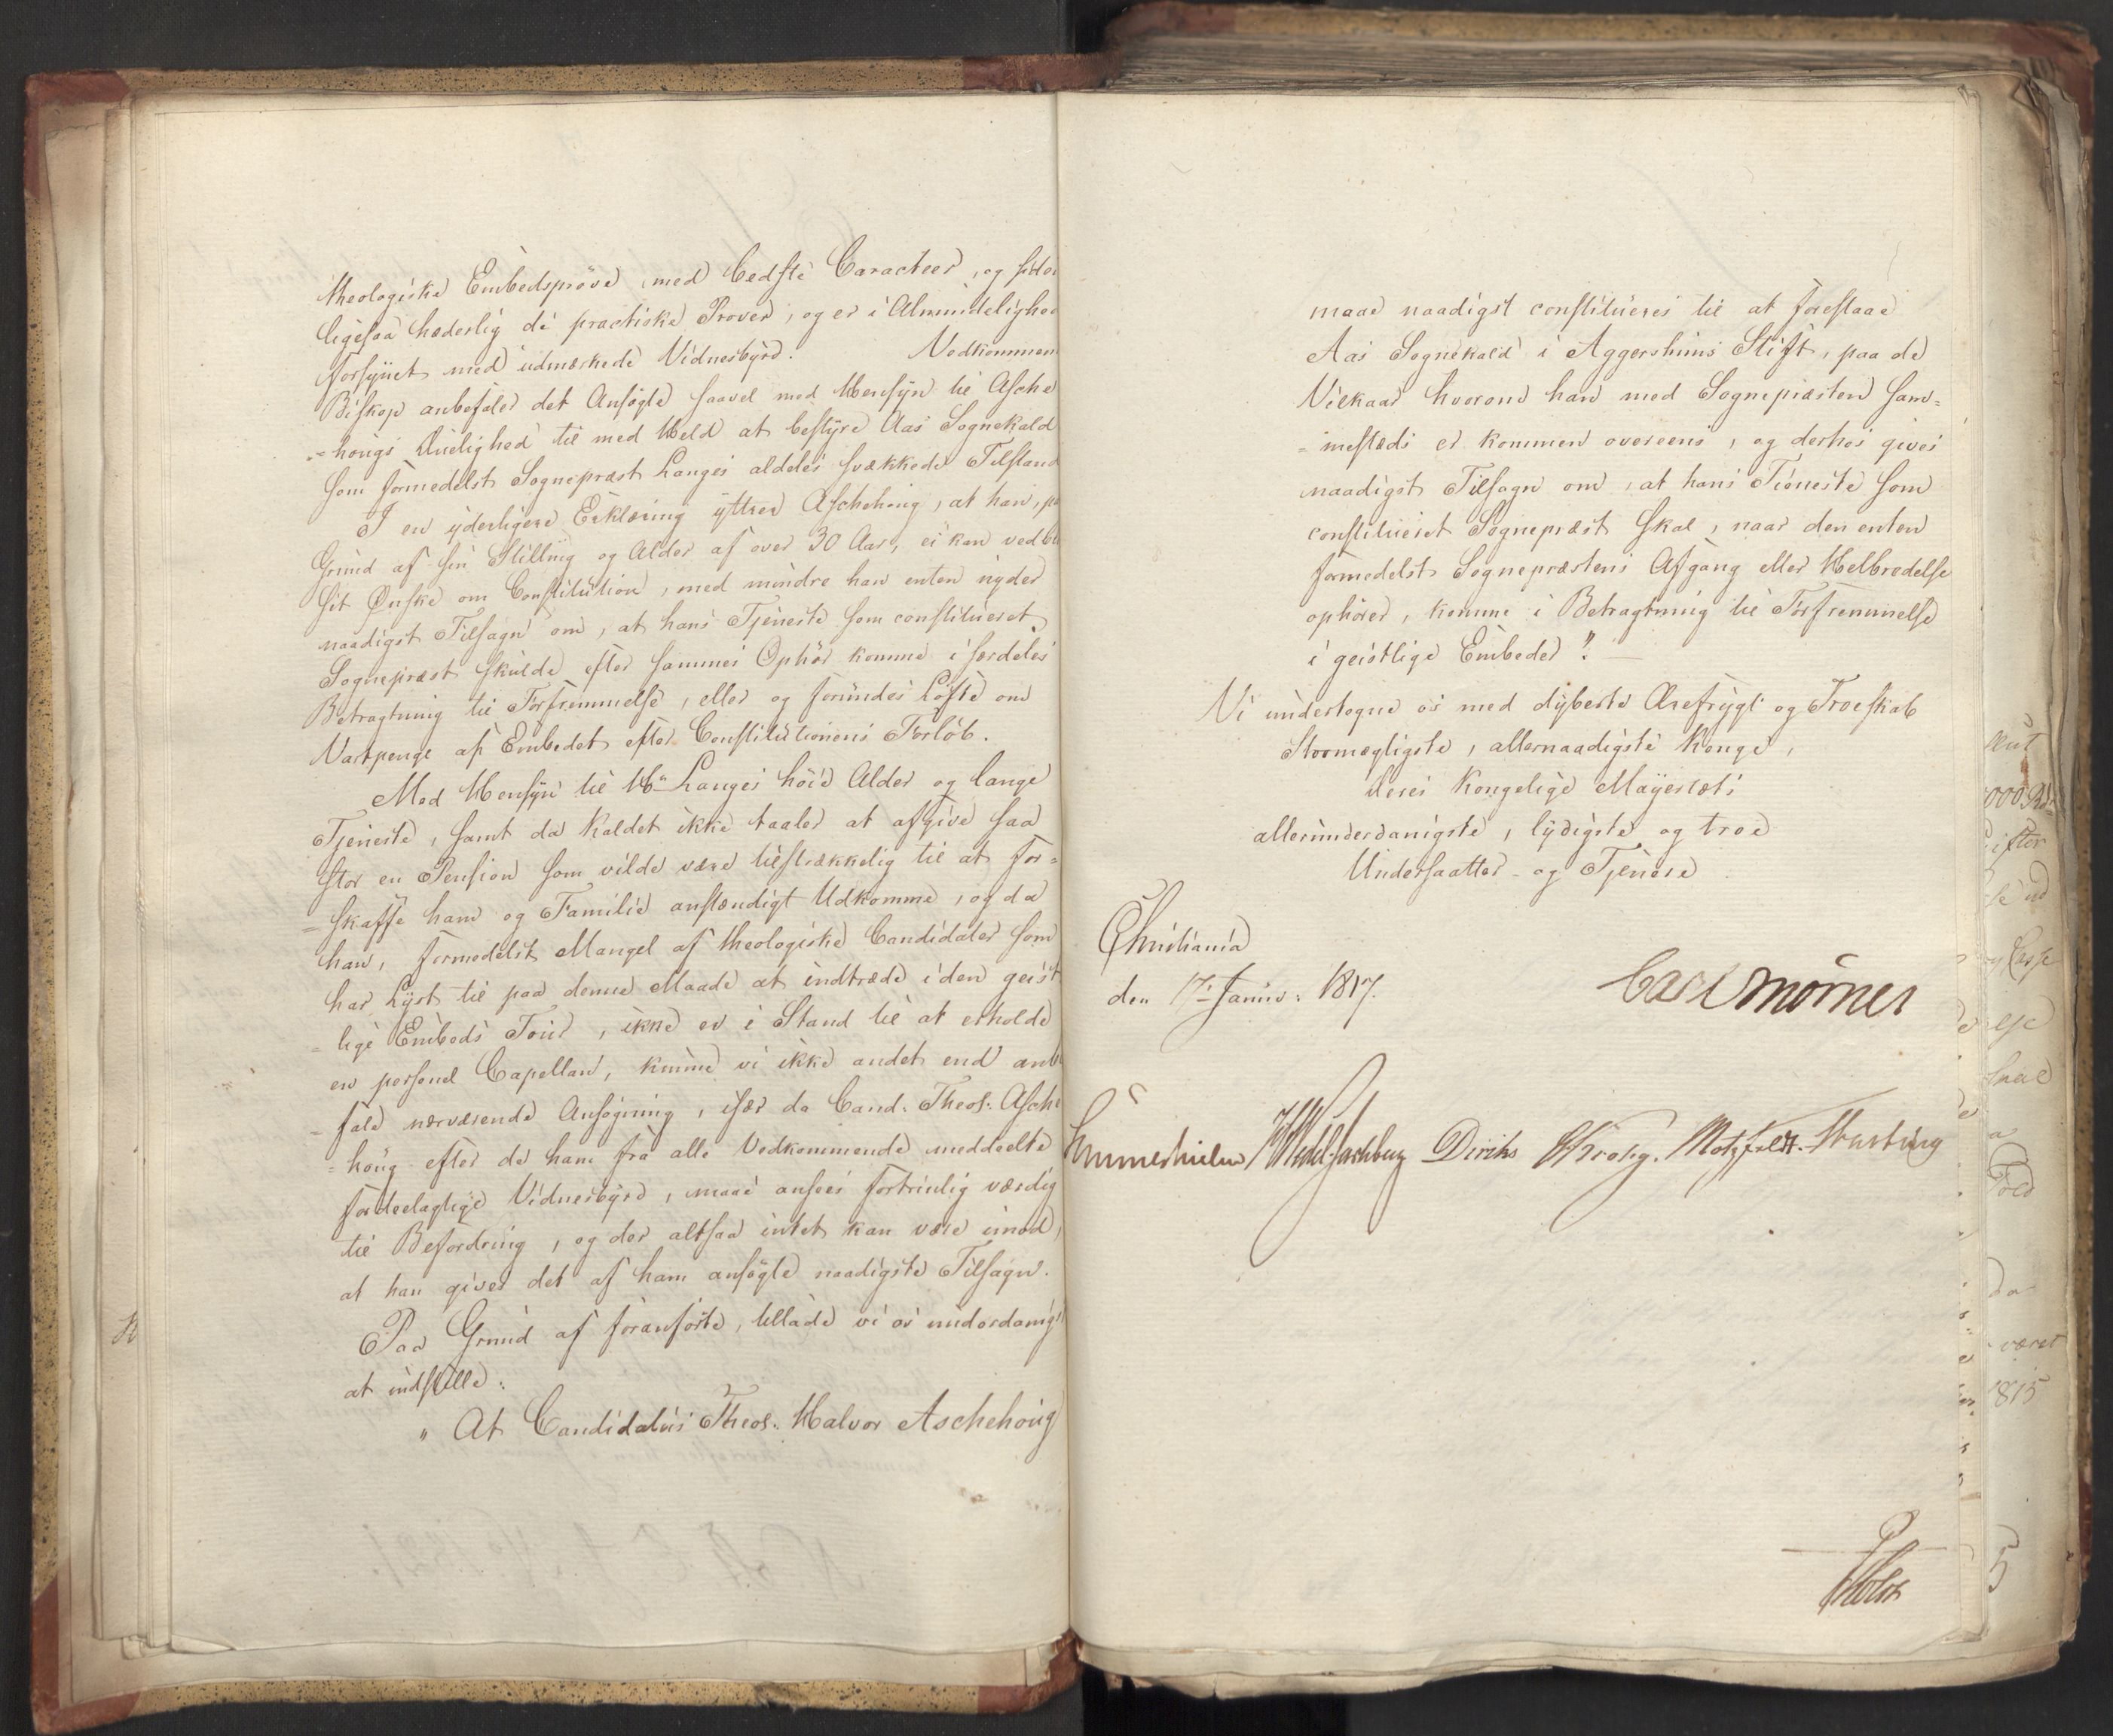 theologiske Embedsprøve, med bedste Caracteer, og siden
ligesaa hæderlig de practiske Prøver, og er i Almindelighed
forsynet med udmærkede Vidnesbyrd. Vedkommen
Biskop anbefaler det Ansøgte saavel med Hensyn til Asche
=hougs Duelighed til med Held at bestyre Aas Sognekald
som formedelst Sognepræst Langes aldeles svækkede Tilstand
I en yderligere Erklæring yttrer Aschehoug, at han, paa
Grund af sin Stilling og Alder af over 30 Aar, ei kan vedbl
sit Ønske om Constitution, med mindre han enten nyder
naadigst Tilsagn om, at hans Tjeneste som constitueret
Sognepræst skulde efter sammes Ophør komme i særdeles
Betragtning til Forfremmelse, eller og forundes Løfte om
Vartpenge af Embedet efter Constitutionens Forløb.
Med Hensyn til Hr Langes høie Alder og lange
Tjeneste, samt da Kaldet ikke taaler at afgive saa
stor en Pension som vilde være tilstrækkelig til at for=
=skaffe ham og Familie anstændigt Udkomme, og da
han, formedelst Mangel af theologiske Candidater som
har Lyst til paa denne Maade at indtræde i den geist
=lige Embeds Tour, ikke er i Stand til at erholde
en personel Capellan, kunne vi ikke andet end anbe
=fale nærværende Ansøgning, især da Cand: Theol: Asche
=houg efter de ham fra alle Vedkommende meddeelte
fordeelagtige Vidnesbyrd, maae ansees fortrinlig værdig
til Befordring, og der altsaa intet kan være imod,
at han gives det af ham ansøgte naadigste Tilsagn.
Paa Grund af foranførte, tillade vi os underdanigst
at indstille:
" At Candidatus Theol: Halvor Aschehoug
maae naadigst constitueres til at forestaae
Aas Sognekald i Aggershuus Stift, paa de
Vilkaar hvorom han med Sognepræsten sam=
=mesteds er kommen overeens, og derhos gives
naadigst Tilsagn om, at hans Tieneste som
constitueret Sognepræst skal, naar den enten
formedelst Sognepræstens Afgang eller Helbredelse
ophører, komme i Betragtning til Forfremmelse
i geistlige Embeder".
Vi undertegne os med dybeste Ærefrygt og Troeskab
Stormægtigste, allernaadigste Konge,
Deres Kongelige Mayestæts
allerunderdanigste, lydigste og troe
Undersaatter og Tjenere
Christiania
den 17: Januar: 1817.
Carl Mörner
Sommerhielm HWedel Jarlsberg Diriks CKrohg. Motzfeldt. Hansteng
Holst
000 Rd
efter
se ud
Casse
else
skal
a
Told
da
været
1815
5